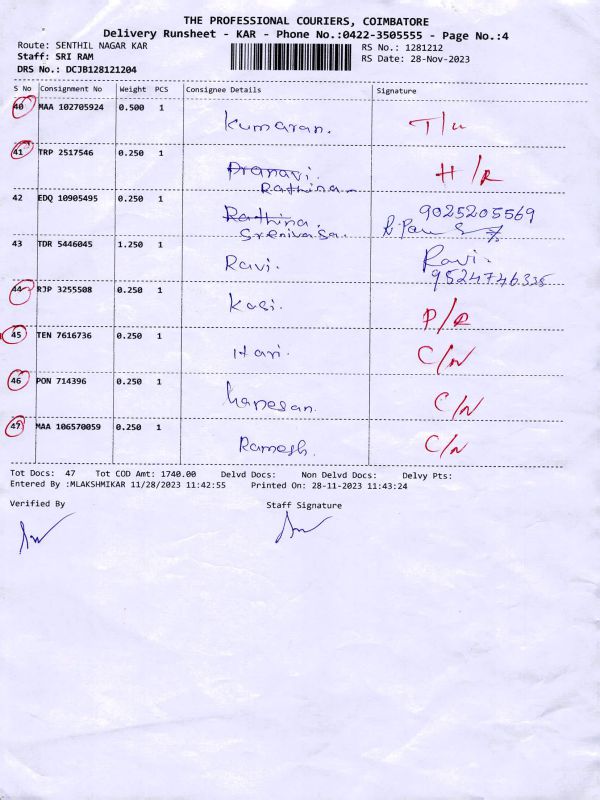 THE PROFESSIONAL COURIERS, COIMBATORE
Delivery Runsheet - KAR - Phone No.:0422-3505555 - Page No.:4
Route: SENTHIL NAGAR KAR RS No.: 1281212
Staff: SRI RAM RS Date: 28-Nov-2023
DRS No.: DCJB128121204
S No Consignment No Weight PCS Consignee Details Signature
40 MAA 102705924 0.500 1
Kumaran. T/L
41 TRP 2517546 0.250 1
Pranavi. H/R
Rathina
42 EDQ 10905495 0.250 1 9025205569
Rathina.
Srenivasa.
43 TDR 5446045 1.250 1
Ravi. Ravi.
9524746335
44 RJP 3255508 0.250 1
Kasi. P/R
45 TEN 7616736 0.250 1
Hari. C/N
46 PON 714396 0.250 1
C/N
47 MAA 106570059 0.250 1
Ramesh. C/N
Tot Docs: 47 Tot COD Amt: 1740.00 Delvd Docs: Non Delvd Docs: Delvy Pts:
Entered By :MLAKSHMIKAR 11/28/2023 11:42:55 Printed On: 28-11-2023 11:43:24
Verified By Staff Signature